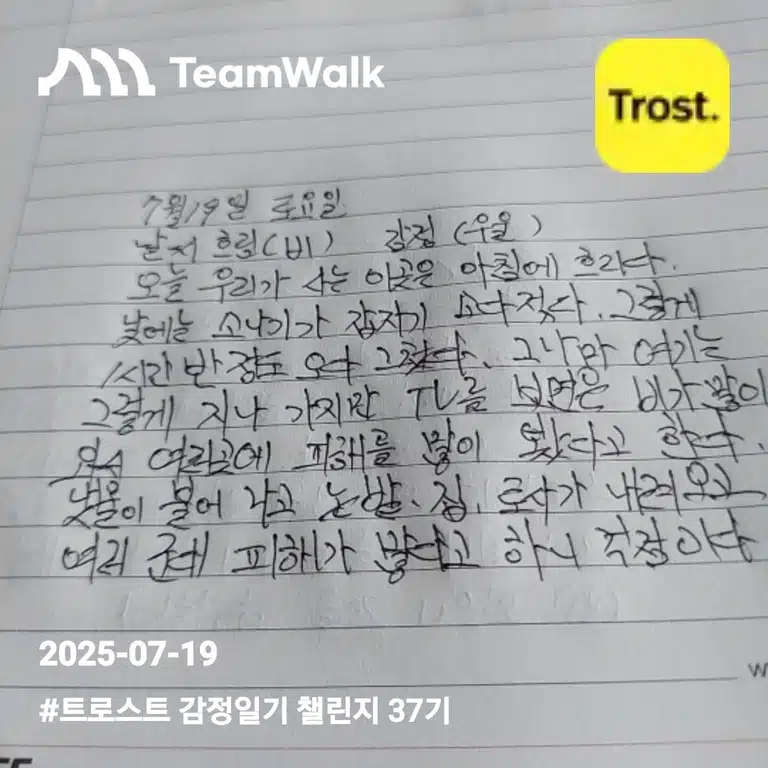 TeamWalk
Trost.
7월19일 토요일
날씨 흐림(비) 감정 (우울)
오늘 우리가 사는 이곳은 아침에 흐리다.
낮에는 소나기가 갑자기 쏘다젓다. 그렇게
1시간 반 정도 오다 그쳤다. 그나마 여기는
그렇게 지나 가지만 TV를 보면은 비가 많이
와서 여러곳에 피해를 많이 왔다고 한다.
냇물이 불어 나고 논밭. 집. 토사가 내려오고
여러 군데 피해가 많다고 하니 걱정이다
2025-07-19
#트로스트 감정일기 챌린지 37기